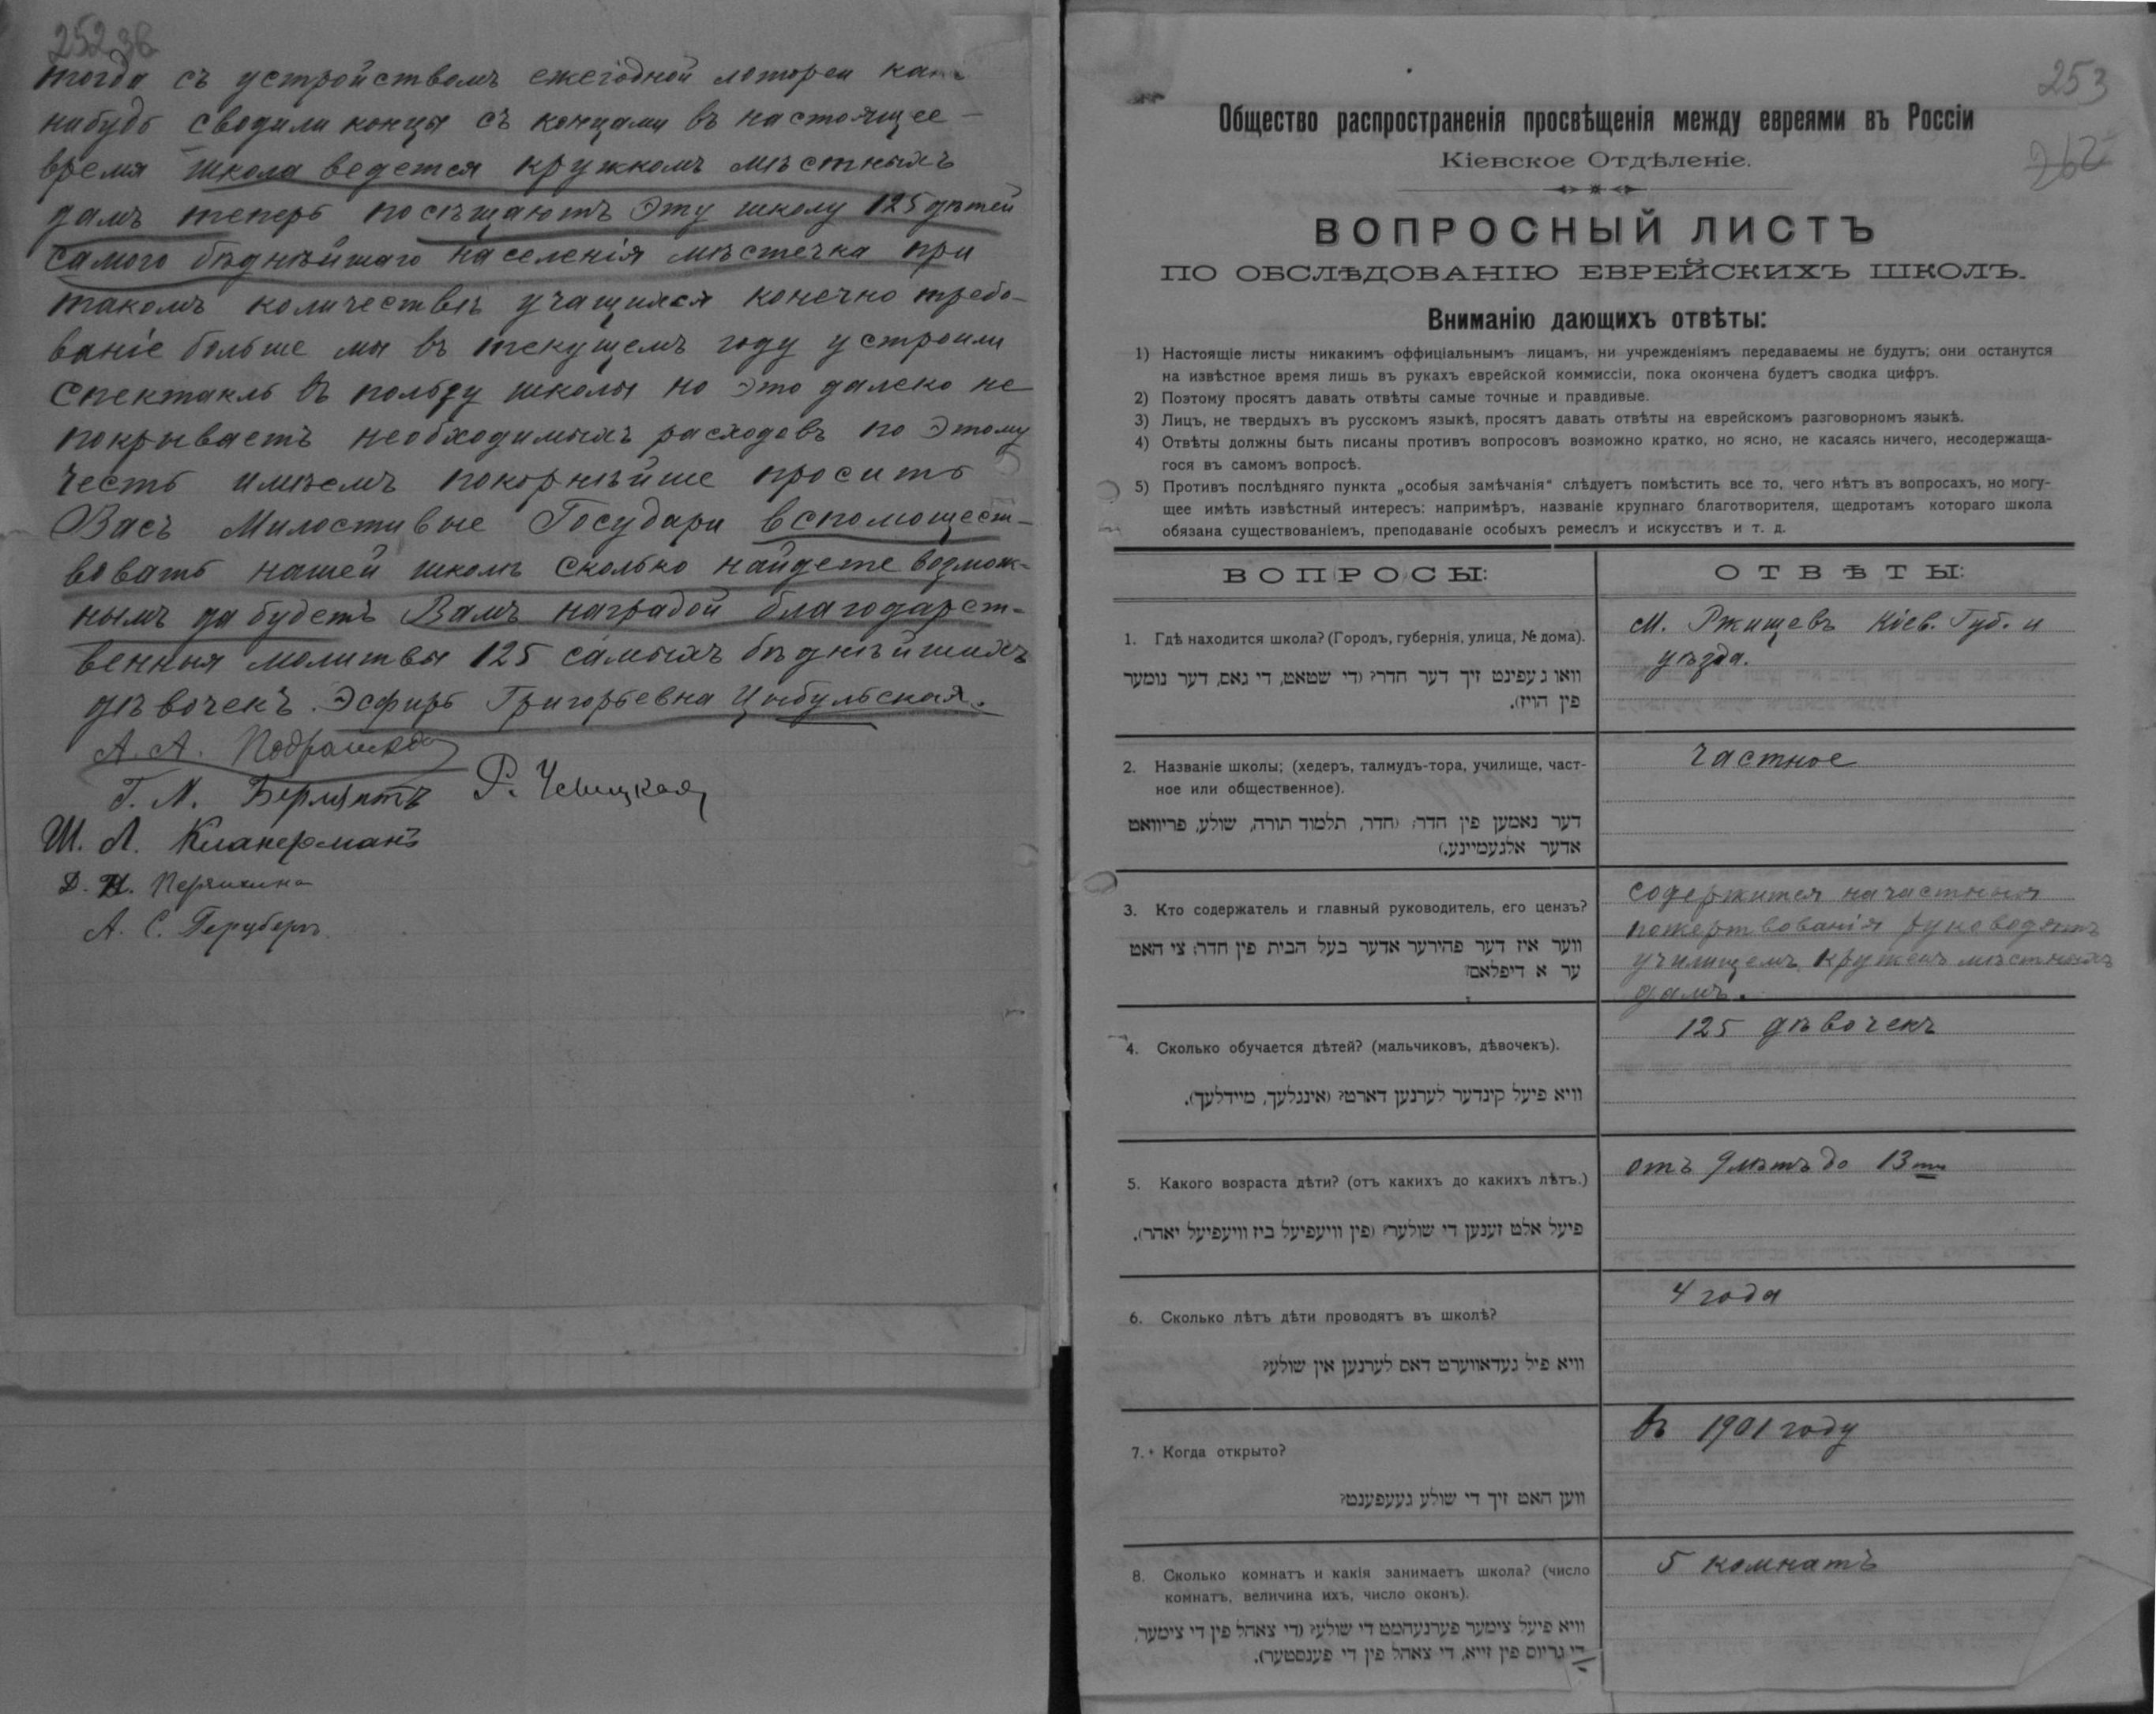 252 об
тогда съ устройствомъ ежегодной лотереи как
нибудь сводили концы съ концами въ настоящее
время школа ведется кружкомъ мѣстныхъ
дамъ теперь посѣщаютъ эту школу 125 дѣтей
самого бѣднѣйшаго населенія мѣстечка при
такомъ количествѣ учащихся конечно требо-
ваніе больше мы въ текущемъ году устроили
спектакль въ пользу школы но это далеко не
покрываетъ необходимыхъ расходовъ по этому
честь имѣемъ покорнѣйше просить
Васъ Милостивые Государи вспомощест-
вовать нашей школѣ сколько найдете возмож-
нымъ да будетъ Вамъ наградой благодарст-
венныя молитвы 125 самыхъ бѣднѣйшихъ
дѣвочекъ. Эсфирь Григорьевна Цыбульская.
А. А.
Г. М.
Р.
Ш. Л. Клаперманъ
Д.
А. С.
253
262
Общество распространенія просвѣщенія между евреями въ Россіи
Кіевское Отдѣленіе.
ВОПРОСНЫЙ ЛИСТЪ
ПО ОБСЛѢДОВАНІЮ ЕВРЕЙСКИХЪ ШКОЛЪ.
Вниманію дающихъ отвѣты:
1) Настоящіе листы никакимъ оффиціальнымъ лицамъ, ни учрежденіямъ передаваемы не будутъ; они останутся
на извѣстное время лишь въ рукахъ еврейской коммиссіи, пока окончена будетъ сводка цифръ.
2) Поэтому просятъ давать отвѣты самые точные и правдивые.
3) Лицъ, не твердыхъ въ русскомъ языкѣ, просятъ давать отвѣты на еврейскомъ разговорномъ языкѣ.
4) Отвѣты должны быть писаны противъ вопросовъ возможно кратко, но ясно, не касаясь ничего, несодержаща-
гося въ самомъ вопросѣ.
5) Противъ послѣдняго пункта „особыя замѣчанія“ слѣдуетъ помѣстить все то, чего нѣтъ въ вопросахъ, но могу-
щее имѣть извѣстный интересъ: напримѣръ, названіе крупнаго благотворителя, щедротамъ котораго школа
обязана существованіемъ, преподаваніе особыхъ ремеслъ и искусствъ и т. д.
ВОПРОСЫ:
ОТВѢТЫ:
1. Гдѣ находится школа? (Городъ, губернія, улица, № дома).
וואו געפינט זיך דער חדר? (די שטאט, די גאס, דער נומער
פין הויז).
М. Ржищевъ Кіев. Губ. и
уѣзда.
2. Названіе школы; (хедеръ, талмудъ-тора, училище, част-
ное или общественное).
דער נאמען פין חדר: (חדר, תלמוד תורה, שולע, פריוואט
אדער אלגעמיינע.)
частное
3. Кто содержатель и главный руководитель, его цензъ?
ווער איז דער פהירער אדער בעל הבית פין חדר: צי האט
ער א דיפלאם?
содержится на частныя
пожертвованія руководятъ
училищемъ кружекъ мѣстныхъ
дамъ.
4. Сколько обучается дѣтей? (мальчиковъ, дѣвочекъ).
וויא פיעל קינדער לערנען דארט? (אינגלעך, מיידלעך).
125 дѣвочекъ
5. Какого возраста дѣти? (отъ какихъ до какихъ лѣтъ.)
פיעל אלט זענען די שולער? (פין וויעפיעל ביז וויעפיעל יאהר).
отъ 9 лѣтъ до 13 ти
6. Сколько лѣтъ дѣти проводятъ въ школѣ?
וויא פיל געדאווערט דאס לערנען אין שולע?
4 года
7. Когда открыто?
ווען האט זיך די שולע געעפענט?
въ 1901 году
8. Сколько комнатъ и какія занимаетъ школа? (число
комнатъ, величина ихъ, число оконъ).
וויא פיעל צימער פערנעהמט די שולע? (די צאהל פין די צימער,
די גרויס פין זייא, די צאהל פין די פענסטער).
5 комнатъ